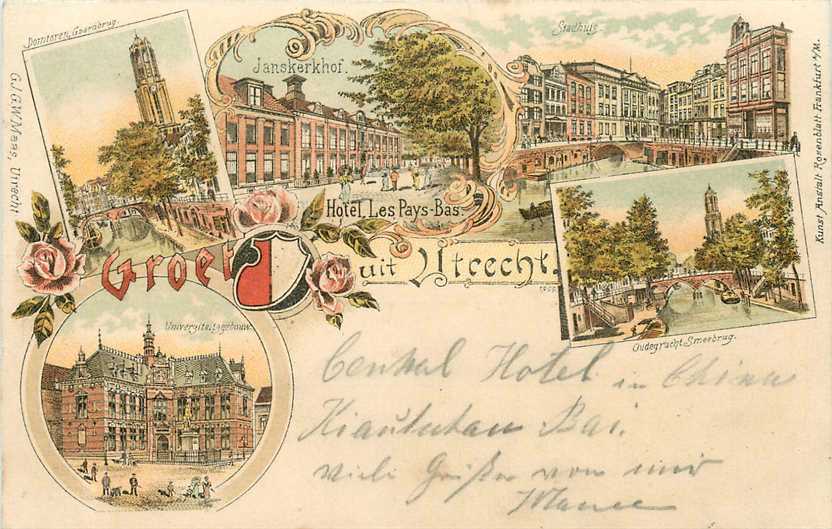 Domtoren, Gaardbrug.
Janskerkhof.
Hotel Les Pays-Bas.
Stadhuis
G.J.G.W. Maas, Utrecht
Kunst Anstalt Rosenblatt Frankfurt a/M.
Groet uit Utrecht.
Oudegracht Smeebrug.
Universiteitsgebouw.
Central Hotel in China
Kiautschau Bai.
Viele Grüße von mir